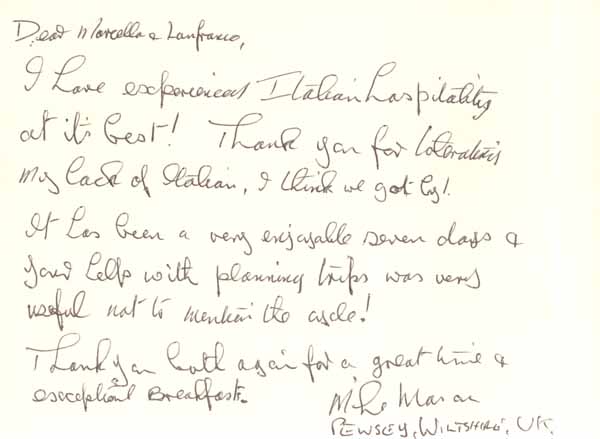 Dear Marcella & Lanfranco,
I have experienced Italian hospitality
at it's best! Thank you for tolerating
my lack of Italian, I think we got by!
It has been a very enjoyable seven days &
your help with planning trips was very
useful not to mention the cycle!
Thank you both again for a great time &
exceptional Breakfasts.
Mike
PEWSEY, WILTSHIRE, UK.